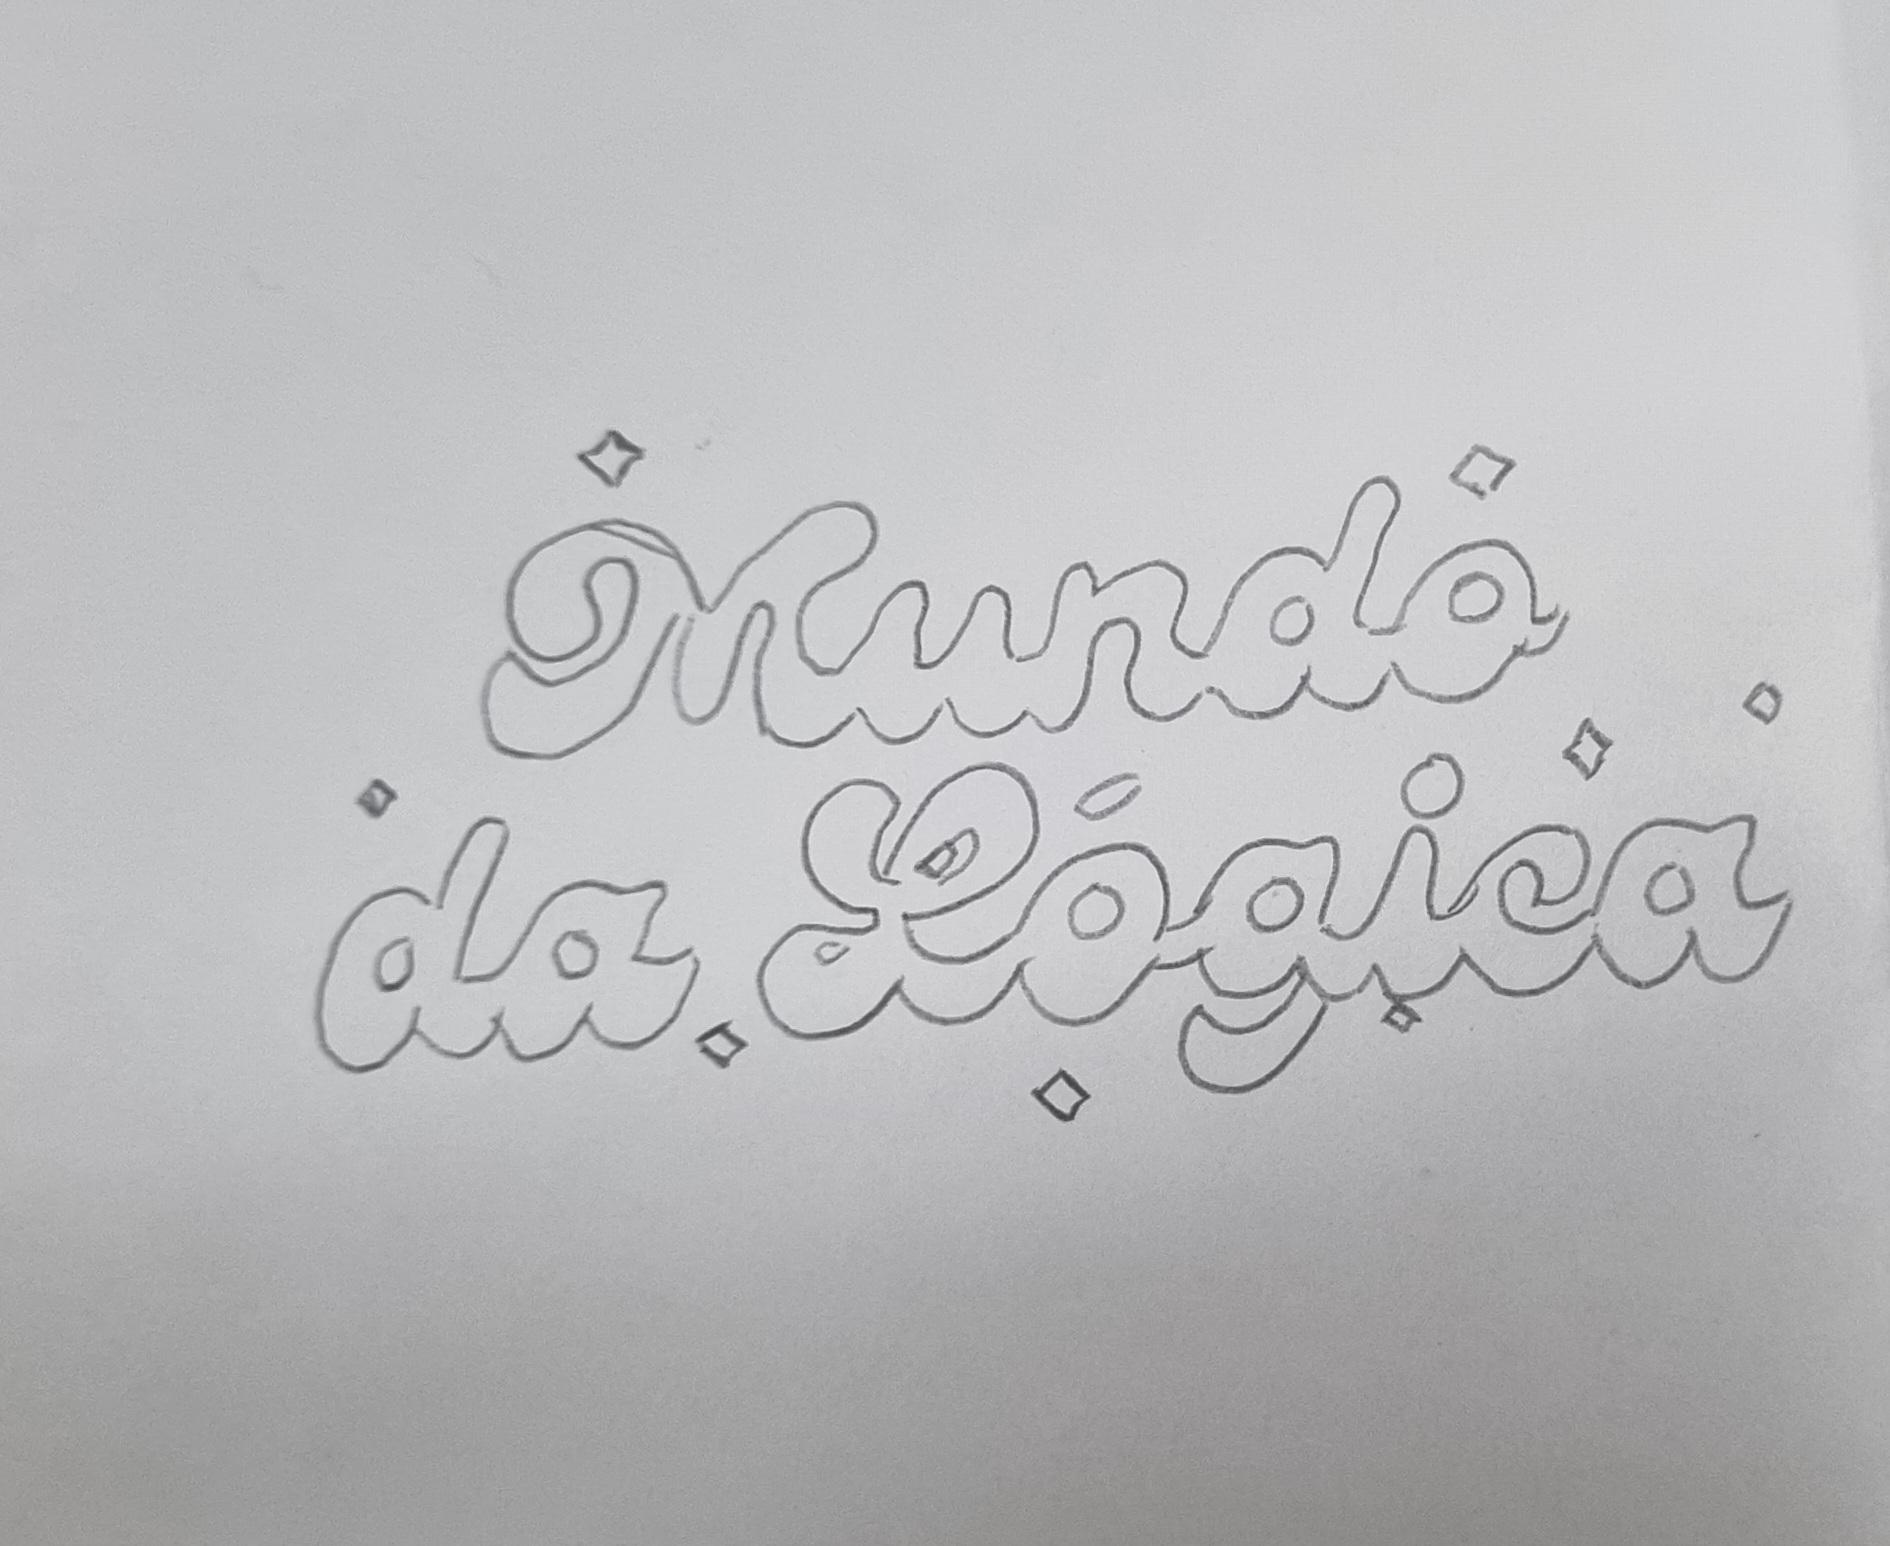 Mundo
da Lógica